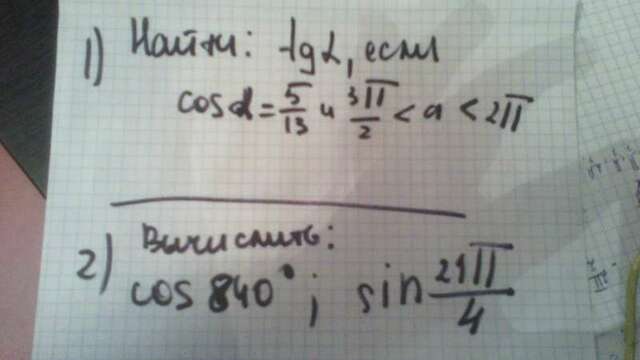 1) Найти: tgα, если
cosα = 5/13 и 3π/2 < a < 2π
2) Вычислить:
cos 840°; sin 21π/4